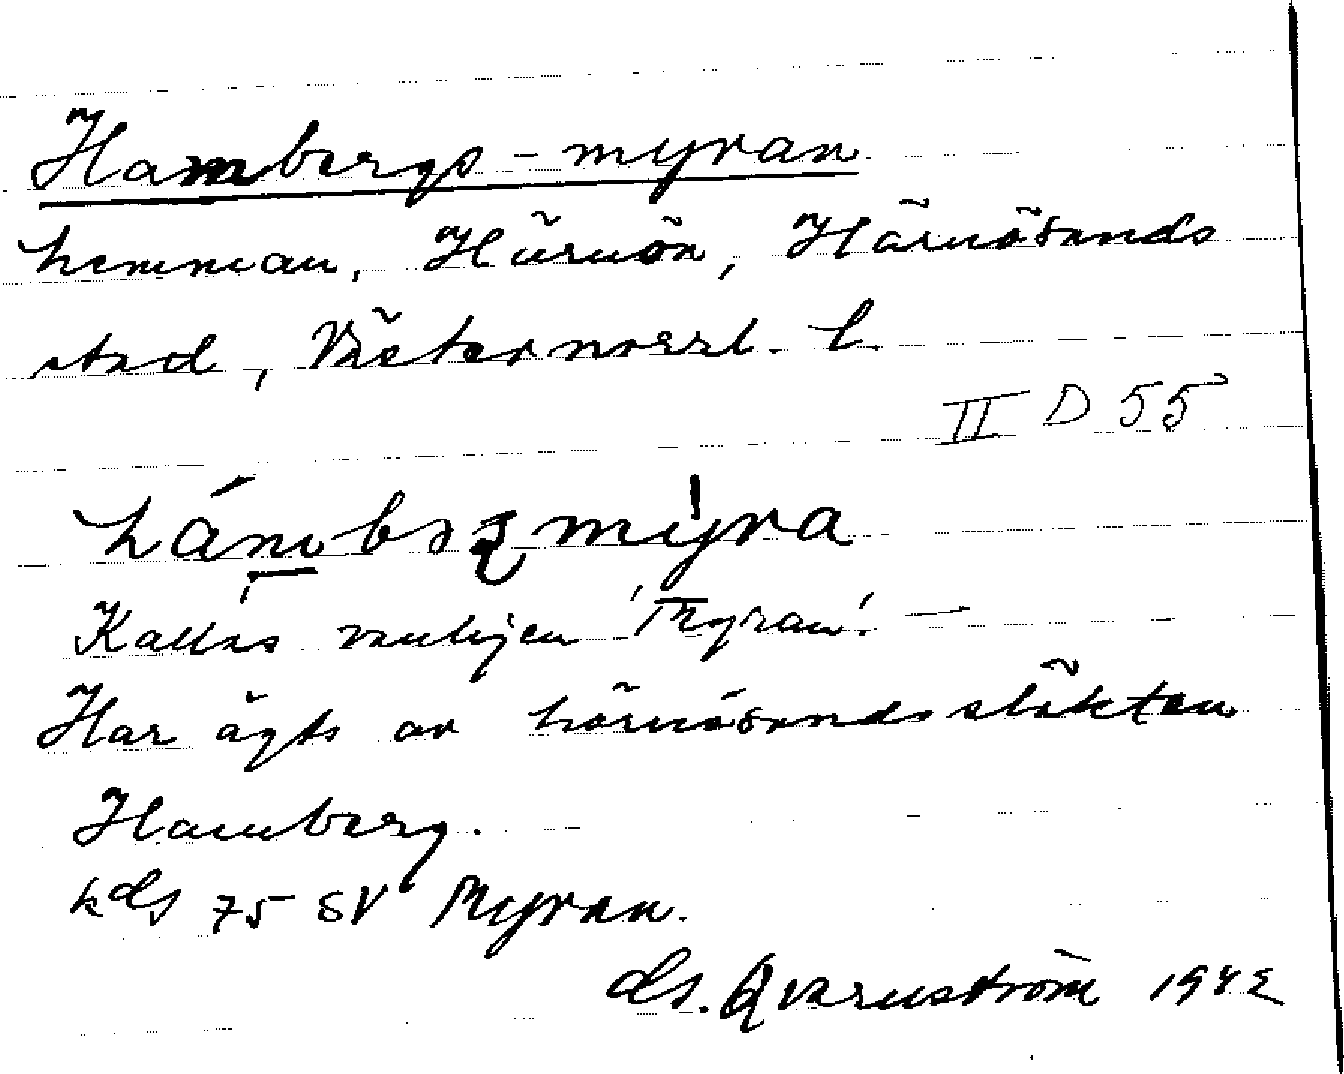 Hambergs-myran
hemman, Härnön, Härnösands
stad, Västernorrl. l.
II D 55
hámbsz mýra
Kallas vanligen 'Myran'. —
Har ägts av härnösandssläkten
Hamberg.
kds 75 SV Myran.
Qvarnström 1942